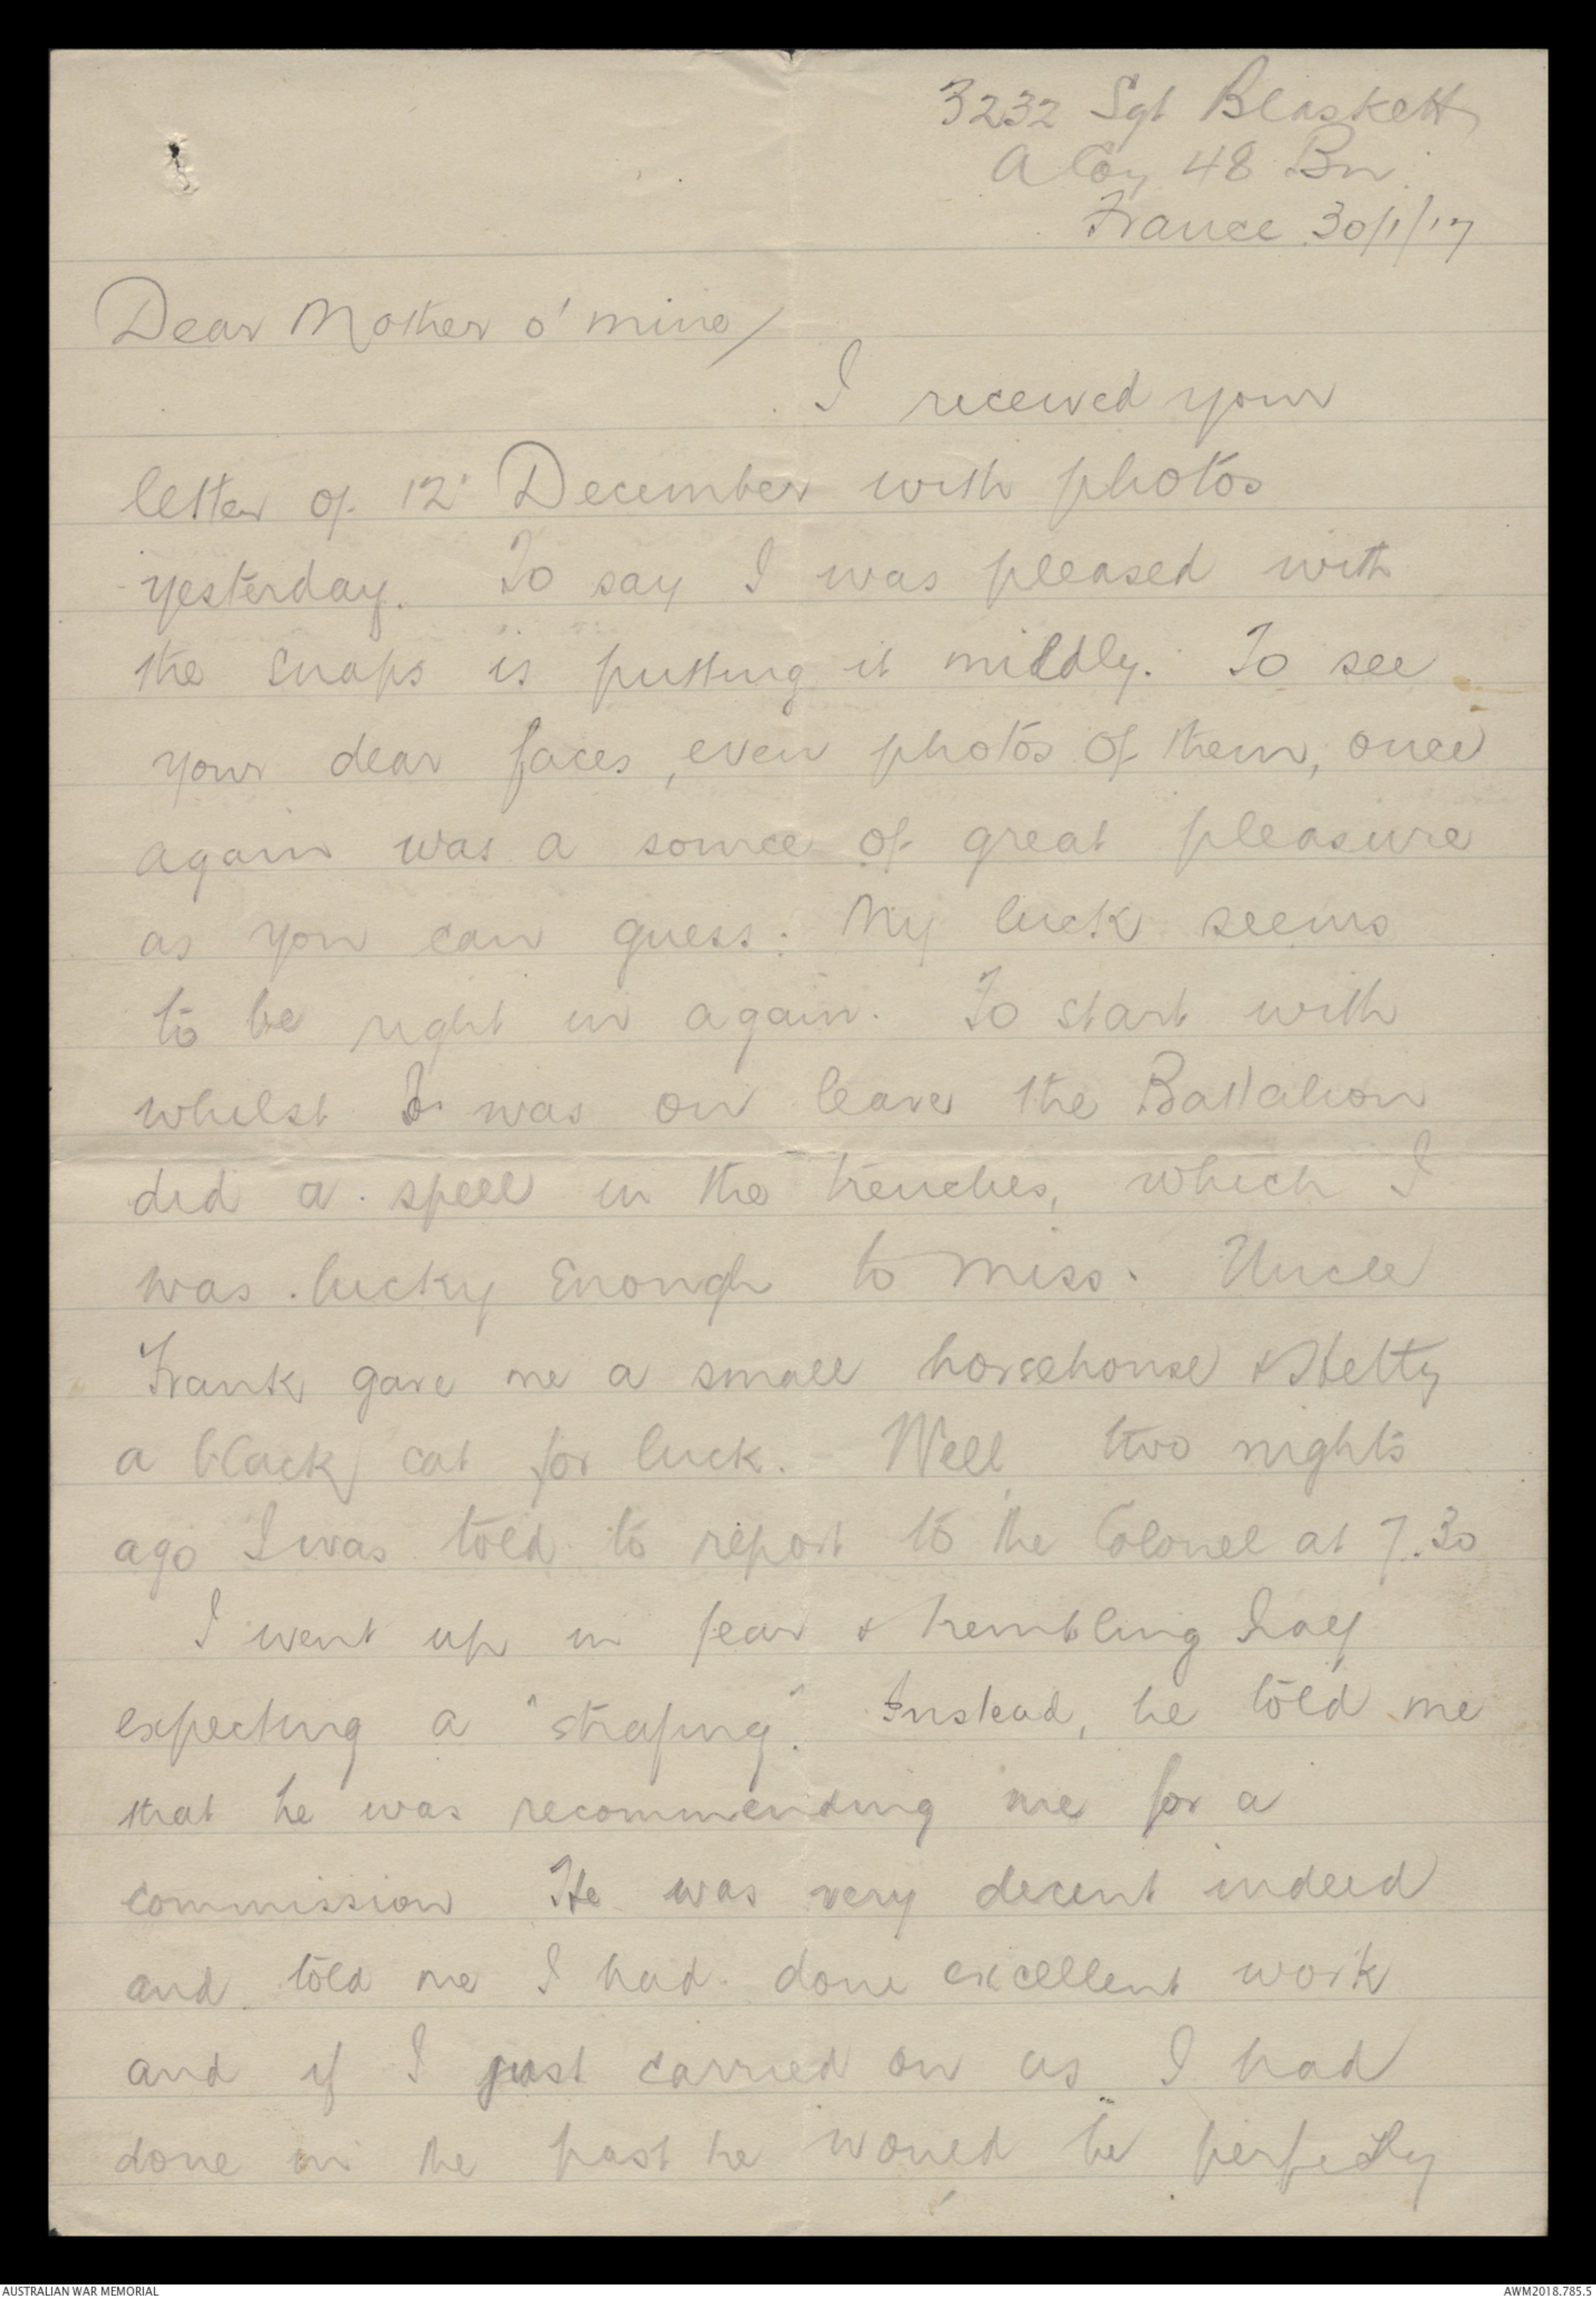 3232 Sgt Blaskett
A Coy 48 Bn.
France 30/1/17
Dear Mother o' mine/
I received your
letter of 12' December with photos
yesterday. To say I was pleased with
the snaps is putting it mildly. To see
your dear faces, even photos of them, once
again was a source of great pleasure
as you can guess. My luck seems
to be right in again. To start with
whilst I was on leave the Battalion
did a spell in the trenches, which I
was lucky enough to miss. Uncle
Frank gave me a small horsehouse & Hetty
a black cat for luck. - Well two nights
ago I was told to report to the Colonel at 7.30
I went up in fear & trembling half
expecting a "strafing". Instead, he told me
that he was recommending me for a
commission He was very decent indeed
and told me I had done excellent work
and if I just carried on as I had
done in the past he would be perfectly
AUSTRALIAN WAR MEMORIAL
AWM2018.785.5